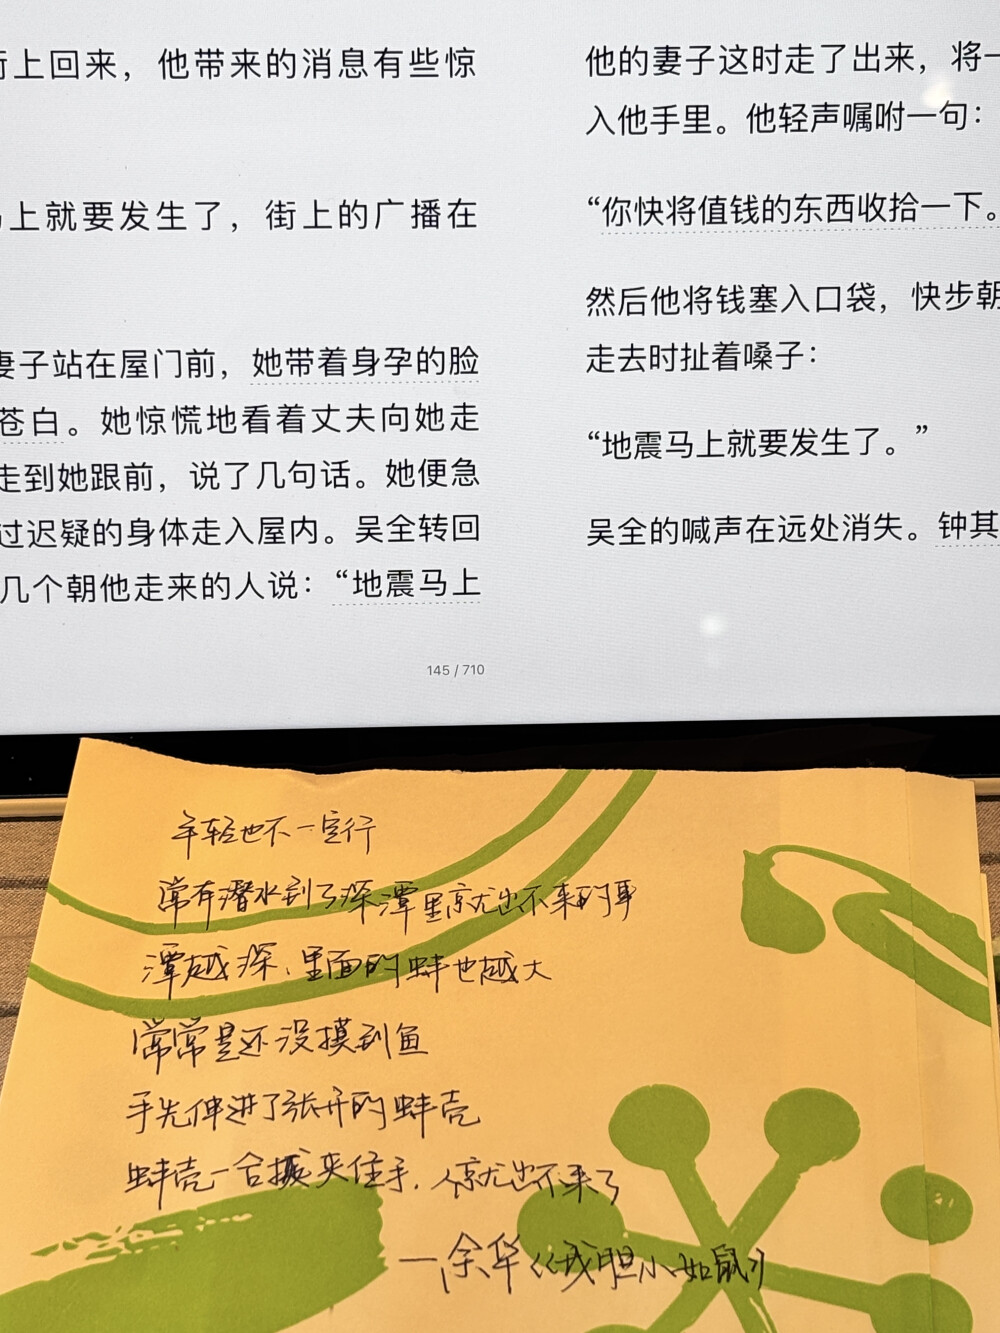 街上回来，他带来的消息有些惊
马上就要发生了，街上的广播在
妻子站在屋门前，她带着身孕的脸
苍白。她惊慌地看着丈夫向她走
走到她跟前，说了几句话。她便急
过迟疑的身体走入屋内。吴全转回
几个朝他走来的人说：“地震马上
145 / 710
他的妻子这时走了出来，将一
入他手里。他轻声嘱咐一句：
“你快将值钱的东西收拾一下。
然后他将钱塞入口袋，快步朝
走去时扯着嗓子：
“地震马上就要发生了。”
吴全的喊声在远处消失。钟其
年轻也不一定行
常有潜水到了深潭里就出不来的事
潭越深、里面的蚌也越大
常常是还没摸到鱼
手先伸进了张开的蚌壳
蚌壳一合拢夹住手，人就出不来了
——余华《我胆小如鼠》